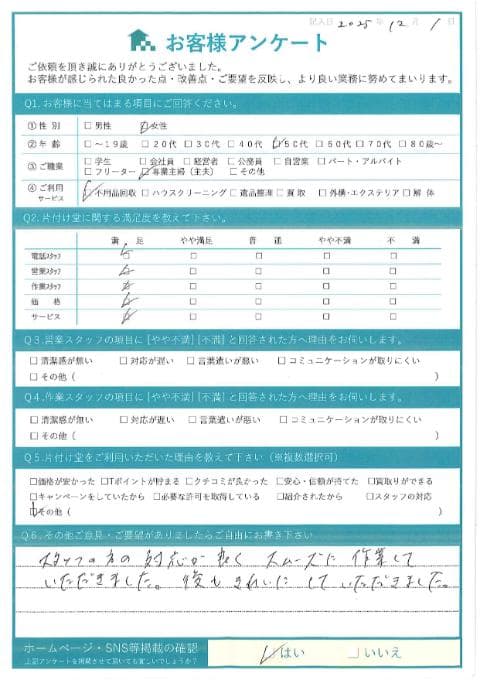 記入日 2025年 12月 1日
お客様アンケート
ご依頼を頂き誠にありがとうございました。
お客様が感じられた良かった点・改善点・ご要望を反映し、より良い業務に努めてまいります。
Q1. お客様に当てはまる項目にご回答ください。
①性別 □男性 ☑女性
②年齢 □～19歳 □20代 □30代 □40代 ☑50代 □60代 □70代 □80歳～
③ご職業 □学生 □会社員 □経営者 □公務員 □自営業 □パート・アルバイト
□フリーター ☑専業主婦（主夫） □その他
④ご利用サービス ☑不用品回収 □ハウスクリーニング □遺品整理 □買取 □外構・エクステリア □解体
Q2. 片付け堂に関する満足度を教えて下さい。
満足 やや満足 普通 やや不満 不満
電話スタッフ ☑ □ □ □ □
営業スタッフ ☑ □ □ □ □
作業スタッフ ☑ □ □ □ □
価格 ☑ □ □ □ □
サービス ☑ □ □ □ □
Q3. 営業スタッフの項目に[やや不満][不満]と回答された方へ理由をお伺いします。
□清潔感が無い □対応が遅い □言葉遣いが悪い □コミュニケーションが取りにくい
□その他（ ）
Q4. 作業スタッフの項目に[やや不満][不満]と回答された方へ理由をお伺いします。
□清潔感が無い □対応が遅い □言葉遣いが悪い □コミュニケーションが取りにくい
□その他（ ）
Q5. 片付け堂をご利用いただいた理由を教えて下さい（※複数選択可）
□価格が安かった □Tポイントが貯まる □クチコミが良かった □安心・信頼が持てた □買取りができる
□キャンペーンをしていたから □必要な許可を取得している □紹介されたから □スタッフの対応
☑その他（ ）
Q6. その他ご意見・ご要望がありましたらご自由にお書き下さい
スタッフの方の対応が良く スムーズに 作業して
いただきました。後もきれいにしていただきました。
ホームページ・SNS等掲載の確認 ☑はい □いいえ
上記アンケートを掲載させて頂いても宜しいでしょうか？